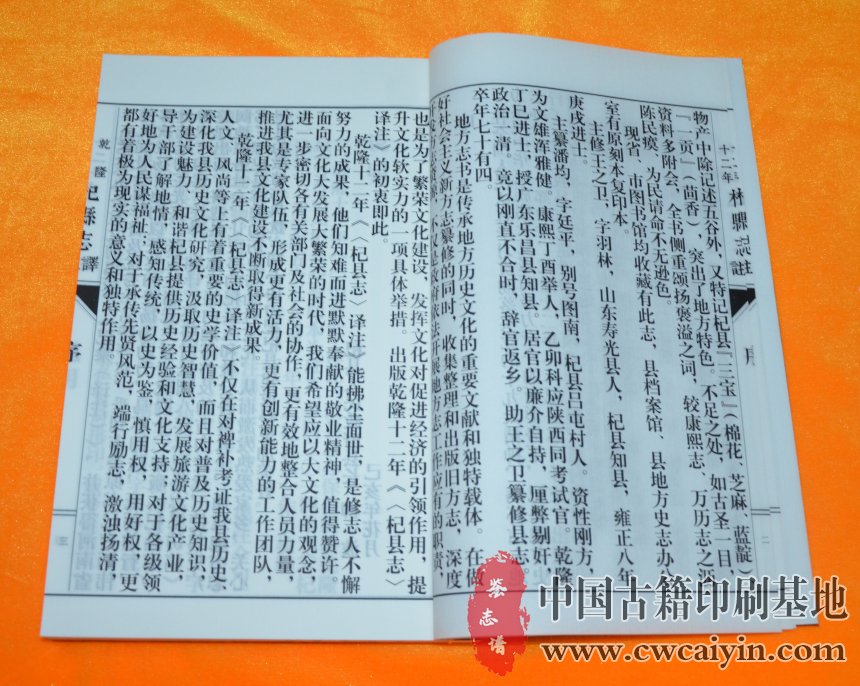 物产中除记述五谷外，又特记杞县『三宝』（棉花、芝麻、蓝靛，
『一贡』（茴香），突出了地方特色，不足之处，如古圣一目，
资料多附会，全书侧重颂扬褒溢之词，较康熙志、万历志之深
陈民瘼，为民请命不无逊色。
现省、市图书馆均收藏有此志，县档案馆、县地方史志办公
室有原刻本复印本。
主修王之卫，字羽林，山东寿光县人，杞县知县，雍正八年
庚戌进士。
主纂潘均，字廷平，别号图南，杞县吕屯村人。资性刚方，
为文雄浑雅健。康熙丁酉举人，乙卯科应陕西同考试官。乾隆
丁巳进士，授广东乐昌县知县。居官以廉介自持，厘弊剔奸，
政治一清。竟以刚直不合时，辞官返乡。助王之卫纂修县志
卒年七十有四。
地方志书是传承地方历史文化的重要文献和独特载体。在做
好社会主义新方志纂修的同时，收集整理和出版旧方志，深度
也是为了繁荣文化建设，发挥文化对促进经济的引领作用，提
升文化软实力的一项具体举措。出版乾隆十二年《〈杞县志〉
译注》的初衷即此。
乾隆十二年《〈杞县志〉译注》能拂尘面世，是修志人不懈
努力的成果，他们知难而进默默奉献的敬业精神，值得赞许。
面向文化大发展大繁荣的时代，我们希望应以大文化的观念，
进一步密切各有关部门及社会的协作，更有效地整合人员力量，
尤其是专家队伍，形成更有活力，更有创新能力的工作团队，
推进我县文化建设不断取得新成果。
乾隆十二年《〈杞县志〉译注》不仅在对裨补考证我县历史、
人文、风尚等上有着重要的史学价值，而且对普及历史知识，
深化我县历史文化研究，汲取历史智慧，发展旅游文化产业，
为建设魅力、和谐杞县提供历史经验和文化支持，对于各级领
导干部了解地情，感知传统，以史为鉴，慎用权，用好权，更
好地为人民谋福祉，对于承传先贤风范，端行励志，激浊扬清
都有着极为现实的意义和独特作用。
序
三
鉴志谱
中国古籍印刷基地
www.cwcaiyin.com